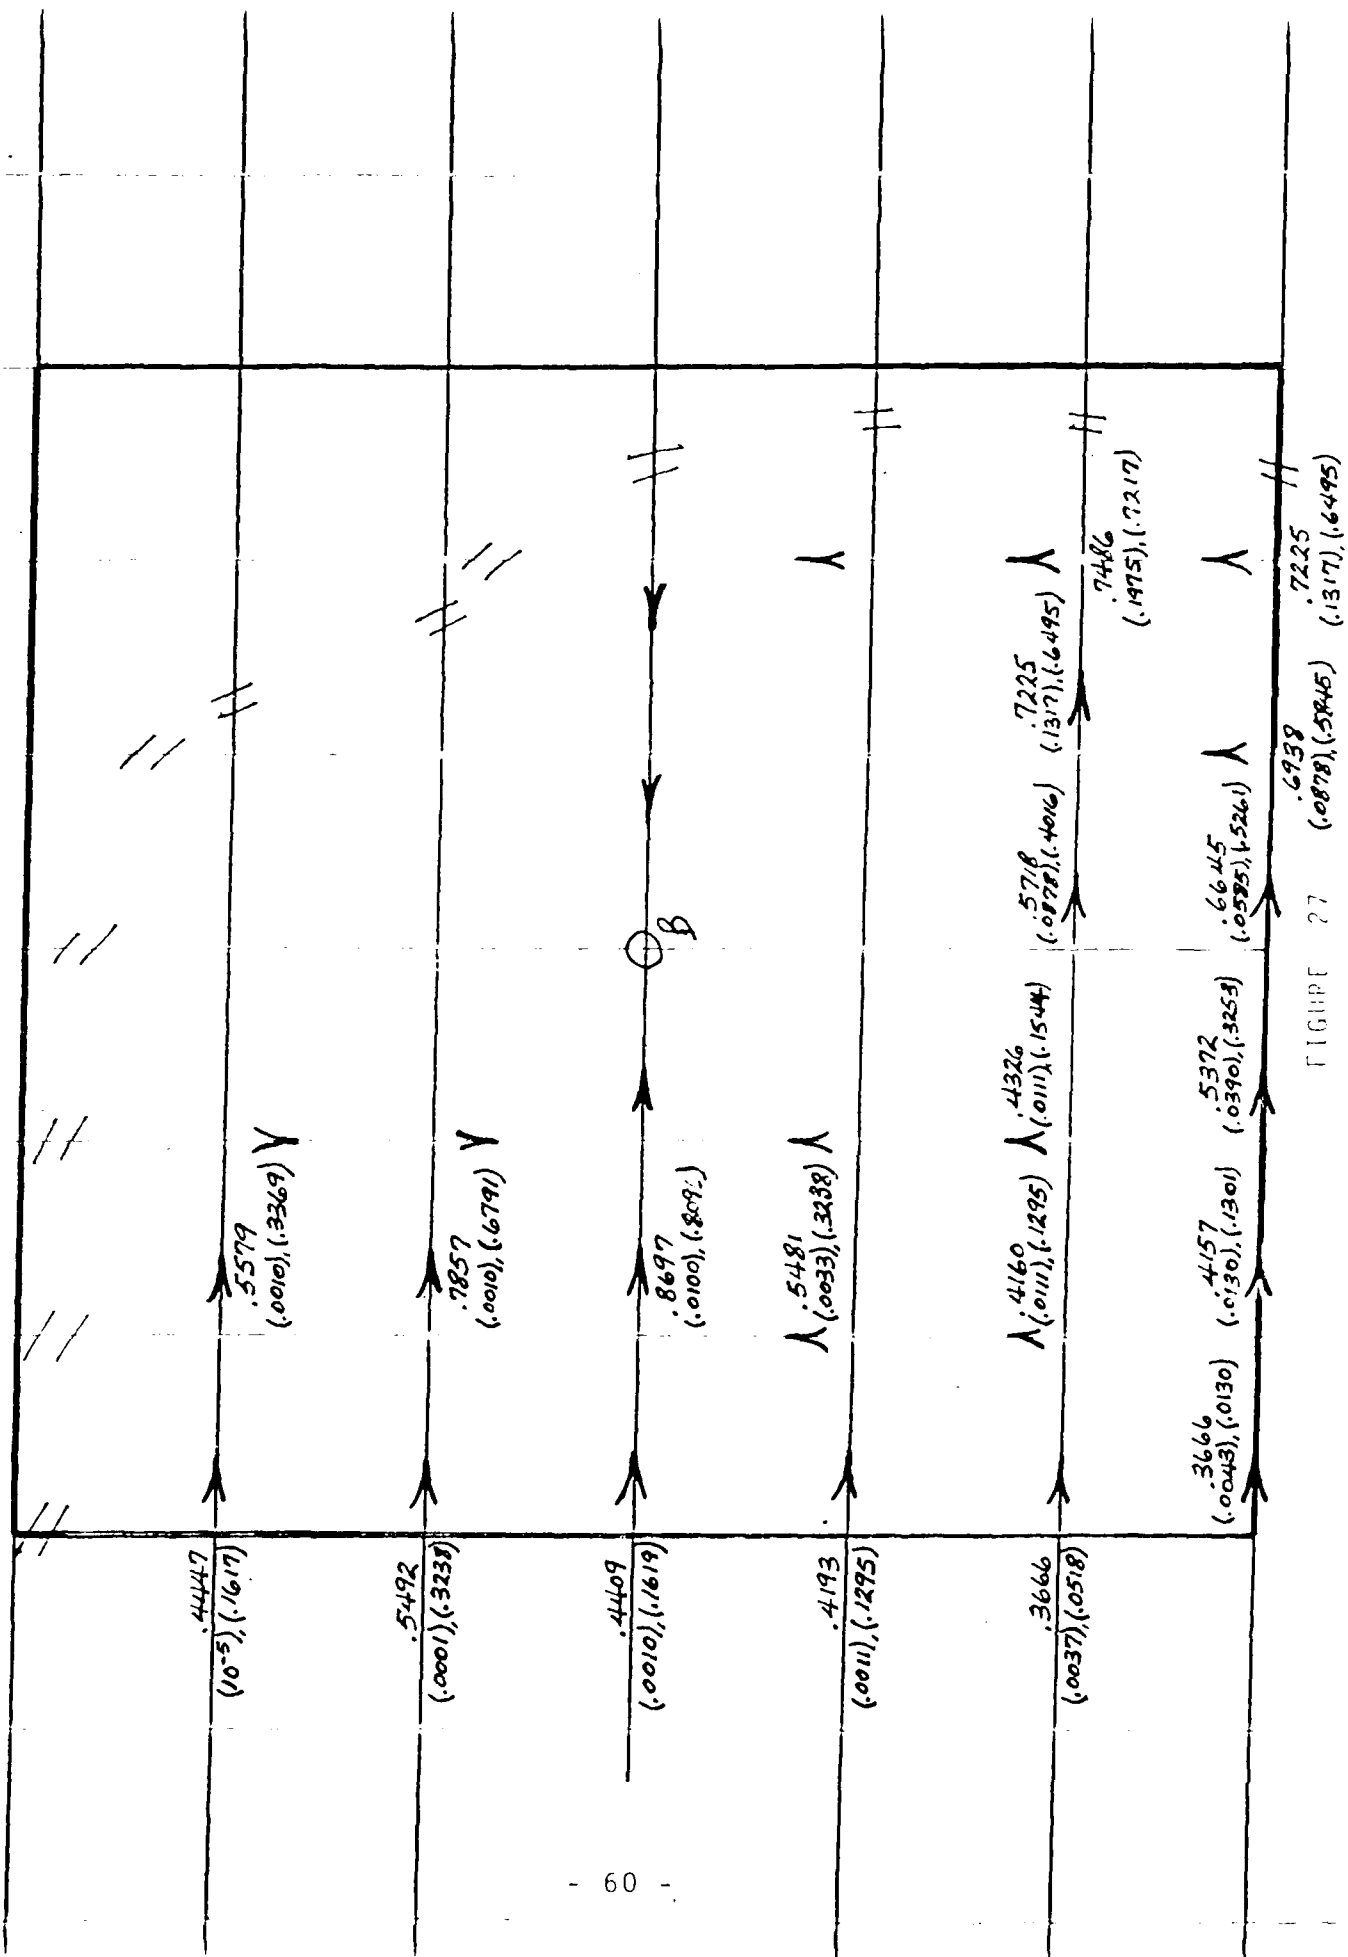 .4447
(10⁻⁵),(.1617)
.5579
(.0010),(.3369)
.5492
(.0001),(.3238)
.7857
(.0010),(.6791)
.4409
(.0010),(.1619)
.8697
(.0100),
B
.4193
(.0011),(.1295)
.5481
(.0033),(.3238)
.3666
(.0037),(.0518)
.4160
(.0111),(.1295)
.4326
(.0111),(.1544)
.5718
(.0878),(.4016)
.7225
(.1317),(.6495)
.7486
(.1975),(.7217)
.3666
(.0043),(.0130)
.4157
(.0130),(.1301)
.5372
(.0390),(.3253)
.6645
(.0585),(.5261)
.6938
(.0878),
.7225
(.1317),(.6495)
FIGURE 27
- 60 -